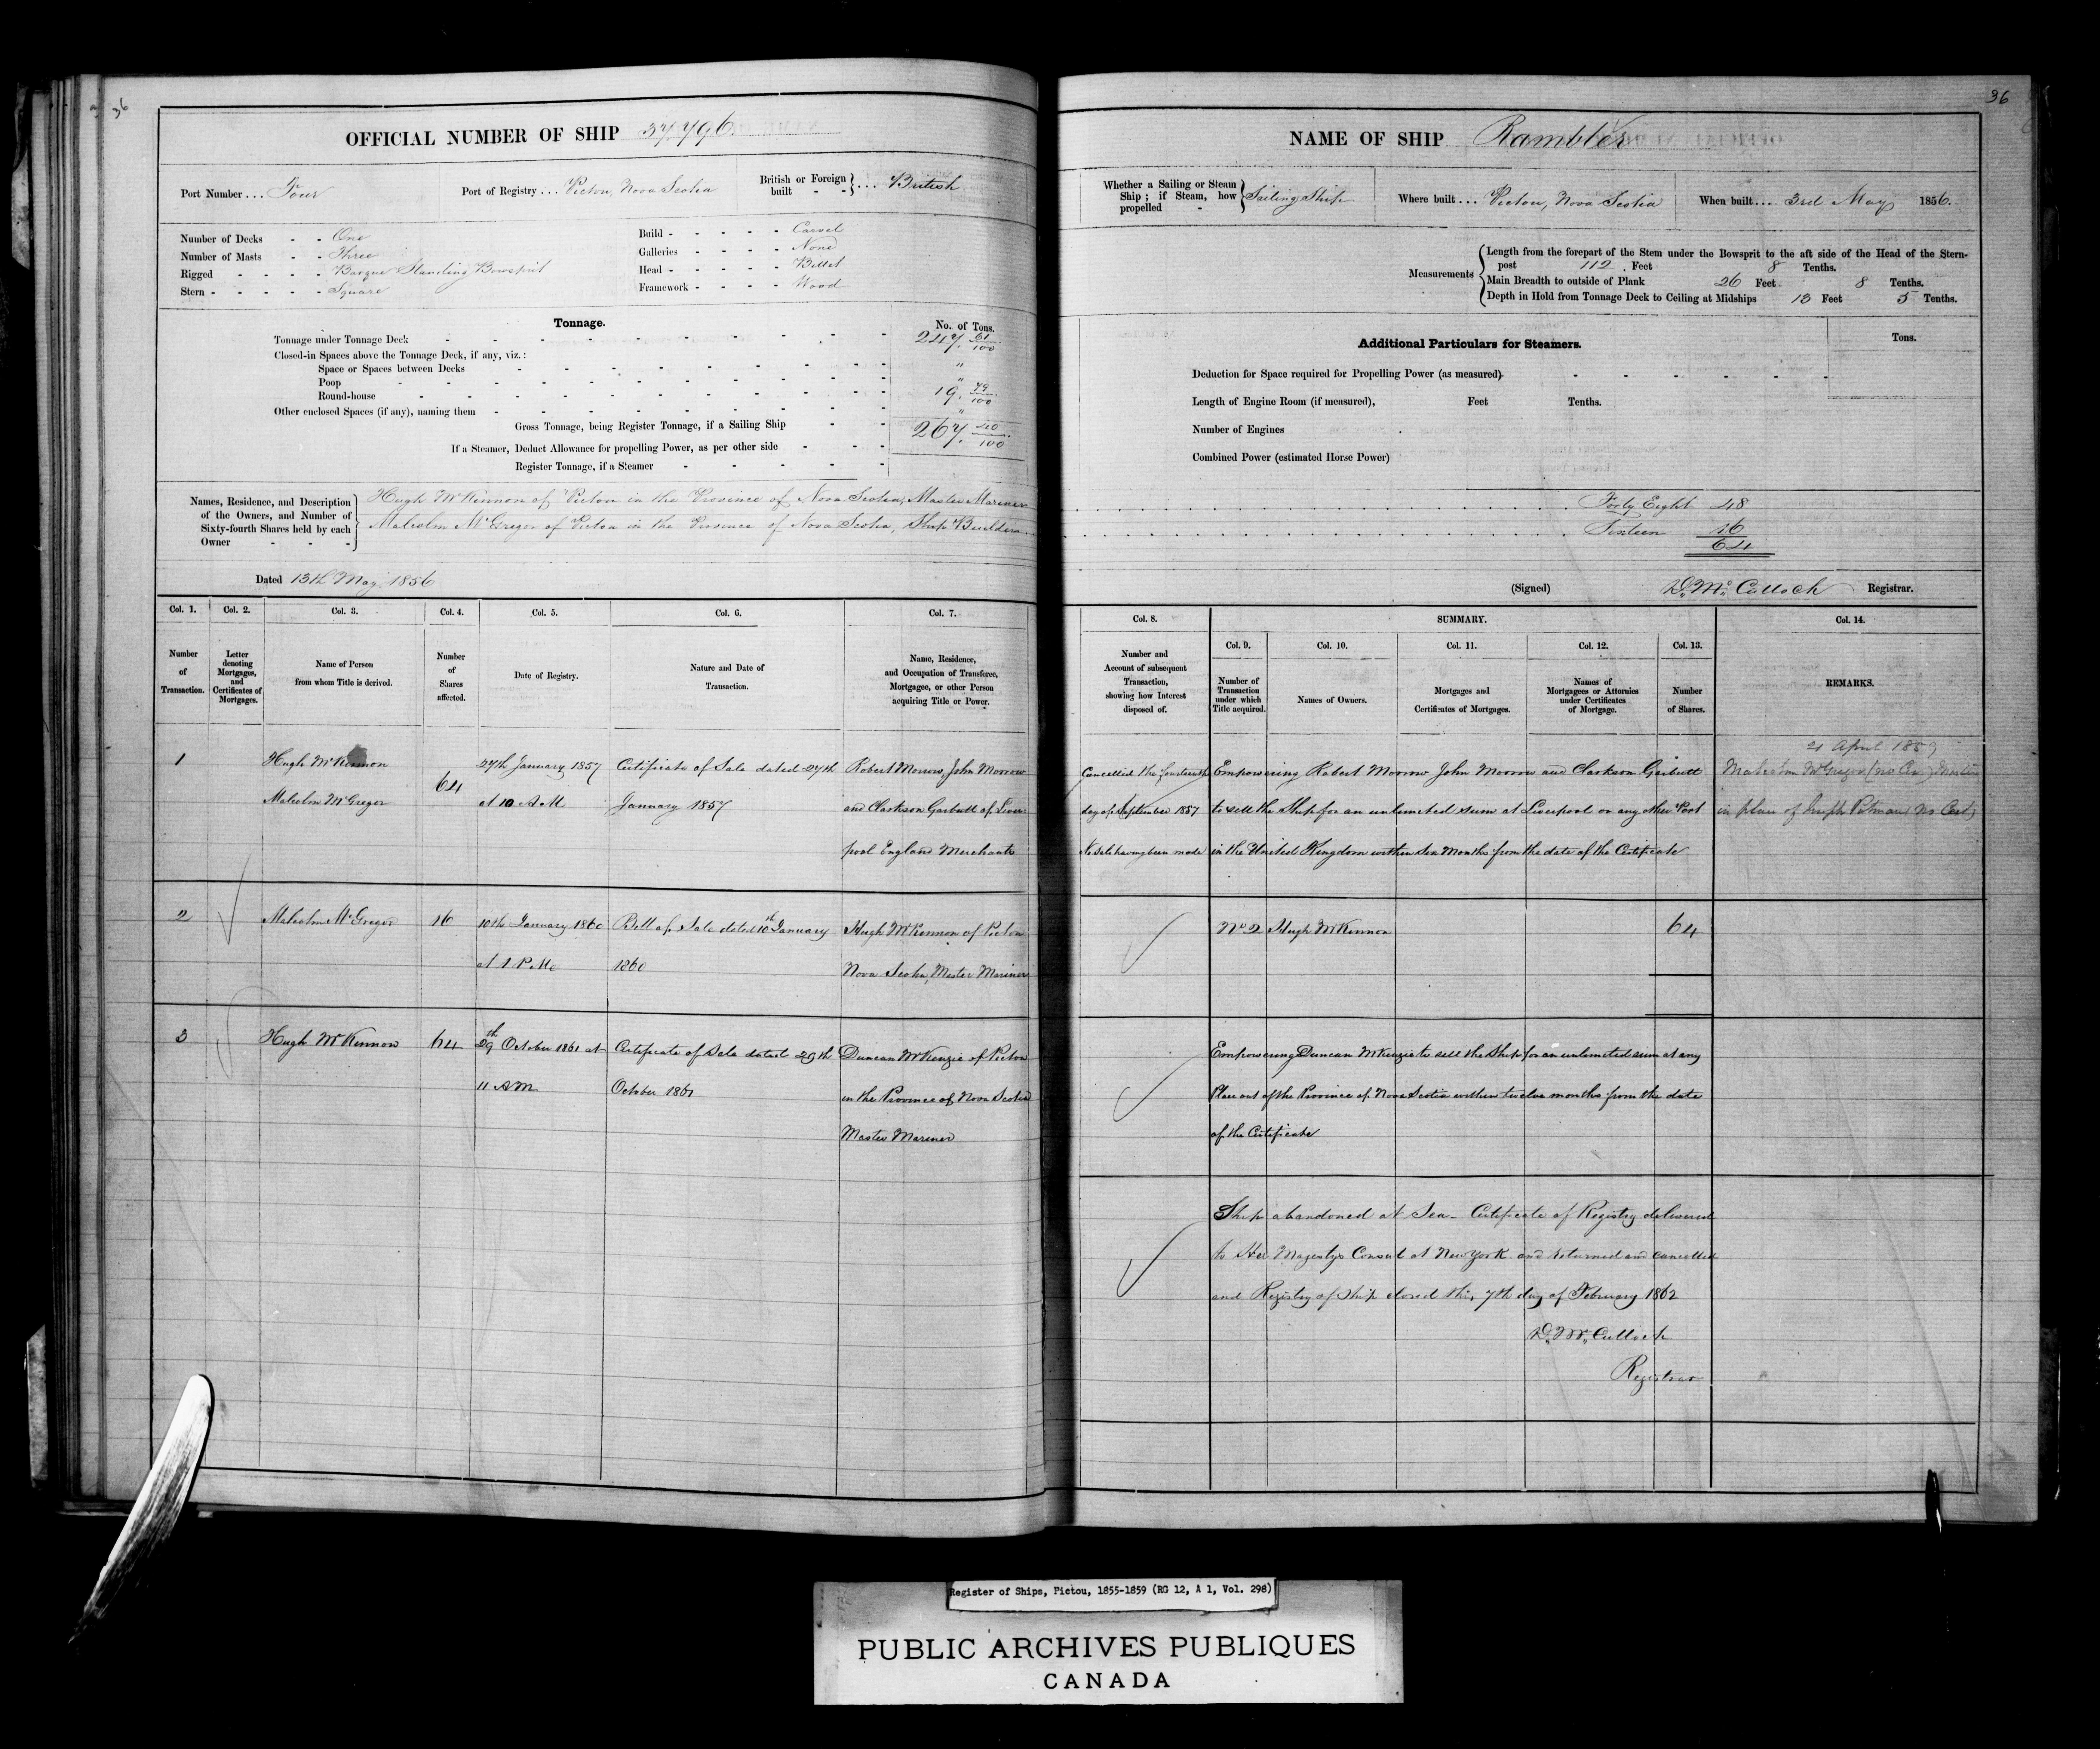 36
OFFICIAL NUMBER OF SHIP 37,796.
Port Number ... Four
Port of Registry ... Pictou, Nova Scotia
British or Foreign built - - } ... British
Number of Decks - - One
Number of Masts - - Three
Rigged - - - - Barque Standing Bowsprit
Stern - - - - - Square
Build - - - - - Carvel
Galleries - - - - None
Head - - - - - Billet
Framework - - - - Wood
Tonnage.
No. of Tons.
Tonnage under Tonnage Deck 247. 61/100
Closed-in Spaces above the Tonnage Deck, if any, viz.:
Space or Spaces between Decks "
Poop "
Round-house 19. 79/100
Other enclosed Spaces (if any), naming them "
Gross Tonnage, being Register Tonnage, if a Sailing Ship 267. 40/100
If a Steamer, Deduct Allowance for propelling Power, as per other side
Register Tonnage, if a Steamer
Names, Residence, and Description of the Owners, and Number of Sixty-fourth Shares held by each Owner
Hugh McKinnon of Pictou in the Province of Nova Scotia, Master Mariner
Malcolm McGregor of Pictou in the Province of Nova Scotia, Ship Builder
Dated 13th May 1856
Col. 1. Col. 2. Col. 3. Col. 4. Col. 5. Col. 6. Col. 7.
Number of Transaction.
Letter denoting Mortgages, and Certificates of Mortgages.
Name of Person from whom Title is derived.
Number of Shares affected.
Date of Registry.
Nature and Date of Transaction.
Name, Residence, and Occupation of Transferee, Mortgagee, or other Person acquiring Title or Power.
1
Hugh McKinnon
Malcolm McGregor
64
27th January 1857
at 10 A.M
Certificate of Sale dated 27th
January 1857
Robert Morrow, John Morrow
and Clarkson Garbutt of Liver
pool England Merchants
2
Malcolm McGregor
16
10th January 1860
at 1 P.M.
Bill of Sale dated 10th January
1860
Hugh McKinnon of Pictou
Nova Scotia, Master Mariner
3
Hugh McKinnon
64
29th October 1861 at
11 A.M
Certificate of Sale dated 29th
October 1861
Duncan McKenzie of Pictou
in the Province of Nova Scotia
Master Mariner
36
NAME OF SHIP Rambler
Whether a Sailing or Steam Ship; if Steam, how propelled - } Sailing Ship
Where built ... Pictou, Nova Scotia
When built ... 3rd May 1856.
Measurements
Length from the forepart of the Stem under the Bowsprit to the aft side of the Head of the Stern-
post 112. Feet 8 Tenths.
Main Breadth to outside of Plank 26 Feet 8 Tenths.
Depth in Hold from Tonnage Deck to Ceiling at Midships 13 Feet 5 Tenths.
Additional Particulars for Steamers.
Tons.
Deduction for Space required for Propelling Power (as measured)
Length of Engine Room (if measured), Feet Tenths.
Number of Engines
Combined Power (estimated Horse Power)
Forty Eight 48
Sixteen 16
64
(Signed) D. McCulloch Registrar.
Col. 8.
SUMMARY.
Col. 9. Col. 10. Col. 11. Col. 12. Col. 13.
Col. 14.
Number and Account of subsequent Transaction, showing how Interest disposed of.
Number of Transaction under which Title acquired.
Names of Owners.
Mortgages and Certificates of Mortgages.
Names of Mortgagees or Attornies under Certificates of Mortgage.
Number of Shares.
REMARKS.
Cancelled the fourteenth
day of September 1857
No Sale having been made
Empowering Robert Morrow John Morrow and Clarkson Garbutt
to sell the Ship for an unlimited sum at Liverpool or any other Port
in the United Kingdom within Six Months from the date of the Certificate
21 April 1859
Malcolm McGregor (no Cer.) Master
in place of Joseph Putman (no Cert)
No 2 Hugh McKinnon 64
Empowering Duncan McKenzie to sell the Ship for an unlimited sum at any
Place out of the Province of Nova Scotia within twelve months from the date
of the Certificate
Ship abandoned at Sea - Certificate of Registry delivered
to Her Majestys Consul at New York and returned and cancelled
and Registry of Ship closed this 7th day of February 1862
D. McCulloch
Registrar
Register of Ships, Pictou, 1855-1859 (RG 12, A 1, Vol. 298)
PUBLIC ARCHIVES PUBLIQUES
CANADA